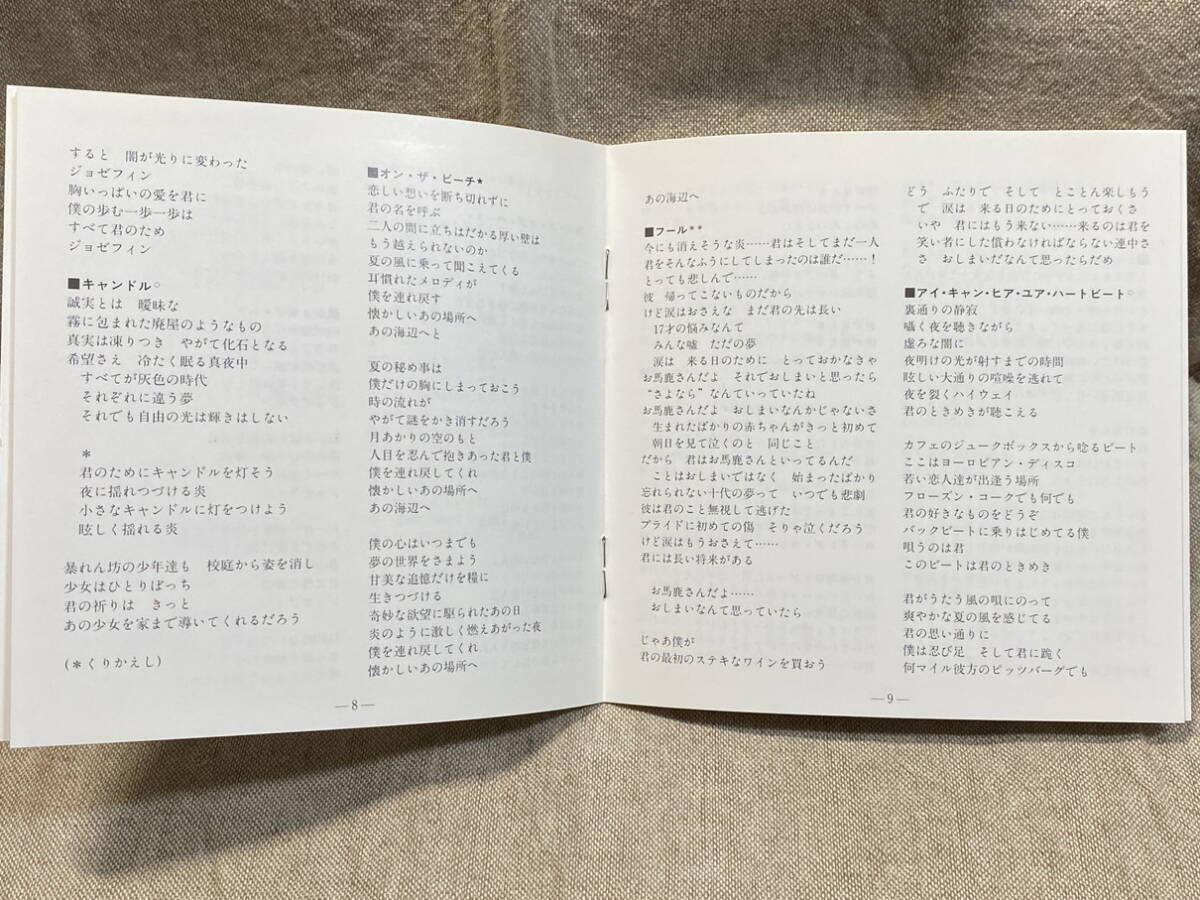 すると　闇が光りに変わった
ジョゼフィン
胸いっぱいの愛を君に
僕の歩む一歩一歩は
すべて君のため
ジョゼフィン
■キャンドル○
誠実とは　曖昧な
霧に包まれた廃屋のようなもの
真実は凍りつき　やがて化石となる
希望さえ　冷たく眠る真夜中
すべてが灰色の時代
それぞれに違う夢
それでも自由の光は輝きはしない
＊
君のためにキャンドルを灯そう
夜に揺れつづける炎
小さなキャンドルに灯をつけよう
眩しく揺れる炎
暴れん坊の少年達も　校庭から姿を消し
少女はひとりぼっち
君の祈りは　きっと
あの少女を家まで導いてくれるだろう
(＊くりかえし)
■オン・ザ・ビーチ★
恋しい想いを断ち切れずに
君の名を呼ぶ
二人の間に立ちはだかる厚い壁は
もう越えられないのか
夏の風に乗って聞こえてくる
耳慣れたメロディが
僕を連れ戻す
懐かしい あの場所へ
あの海辺へと
夏の秘め事は
僕だけの胸にしまっておこう
時の流れが
やがて謎をかき消すだろう
月あかりの空のもと
人目を忍んで抱きあった君と僕
僕を連れ戻してくれ
懐かしいあの場所へ
あの海辺へ
僕の心はいつまでも
夢の世界をさまよう
甘美な追憶だけを糧に
生きつづける
奇妙な欲望に駆られたあの日
炎のように激しく燃えあがった夜
僕を連れ戻してくれ
懐かしいあの場所へ
―8―
あの海辺へ
■フール＊＊
今にも消えそうな炎……君はそしてまだ一人
君をそんなふうにしてしまったのは誰だ……！
とっても悲しんで……
彼　帰ってこないものだから
けど涙はおさえな　まだ君の先は長い
17才の悩みなんて
みんな嘘　ただの夢
涙は　来る日のために　とっておかなきゃ
お馬鹿さんだよ　それでおしまいと思ったら
“さよなら”なんていっていたね
お馬鹿さんだよ　おしまいなんかじゃないさ
生まれたばかりの赤ちゃんがきっと初めて
朝日を見て泣くのと　同じこと
だから　君はお馬鹿さんといってるんだ
ことはおしまいではなく　始まったばかり
忘れられない十代の夢って　いつでも悲劇
彼は君のこと無視して逃げた
プライドに初めての傷　そりゃ泣くだろう
けど涙はもうおさえて……
君には長い将来がある
お馬鹿さんだよ……
おしまいなんて思っていたら
じゃあ僕が
君の最初のステキなワインを買おう
どう　ふたりで　そして　とことん楽しもう
で　涙は　来る日のためにとっておくさ
いや　君にはもう来ない……来るのは君を
笑い者にした償わなければならない連中さ
さ　おしまいだなんて思ったらだめ
■アイ・キャン・ヒア・ユア・ハートビート○
裏通りの静寂
囁く夜を聴きながら
虚ろな闇に
夜明けの光が射すまでの時間
眩しい大通りの喧噪を逃れて
夜を裂くハイウェイ
君のときめきが聴こえる
カフェのジュークボックスから唸るビート
ここはヨーロピアン・ディスコ
若い恋人達が出逢う場所
フローズン・コークでも何でも
君の好きなものをどうぞ
バックビートに乗りはじめてる僕
唄うのは君
このビートは君のときめき
君がうたう風の唄にのって
爽やかな夏の風を感じてる
君の思い通りに
僕は忍び足　そして君に跪く
何マイル彼方のピッツバーグでも
―9―